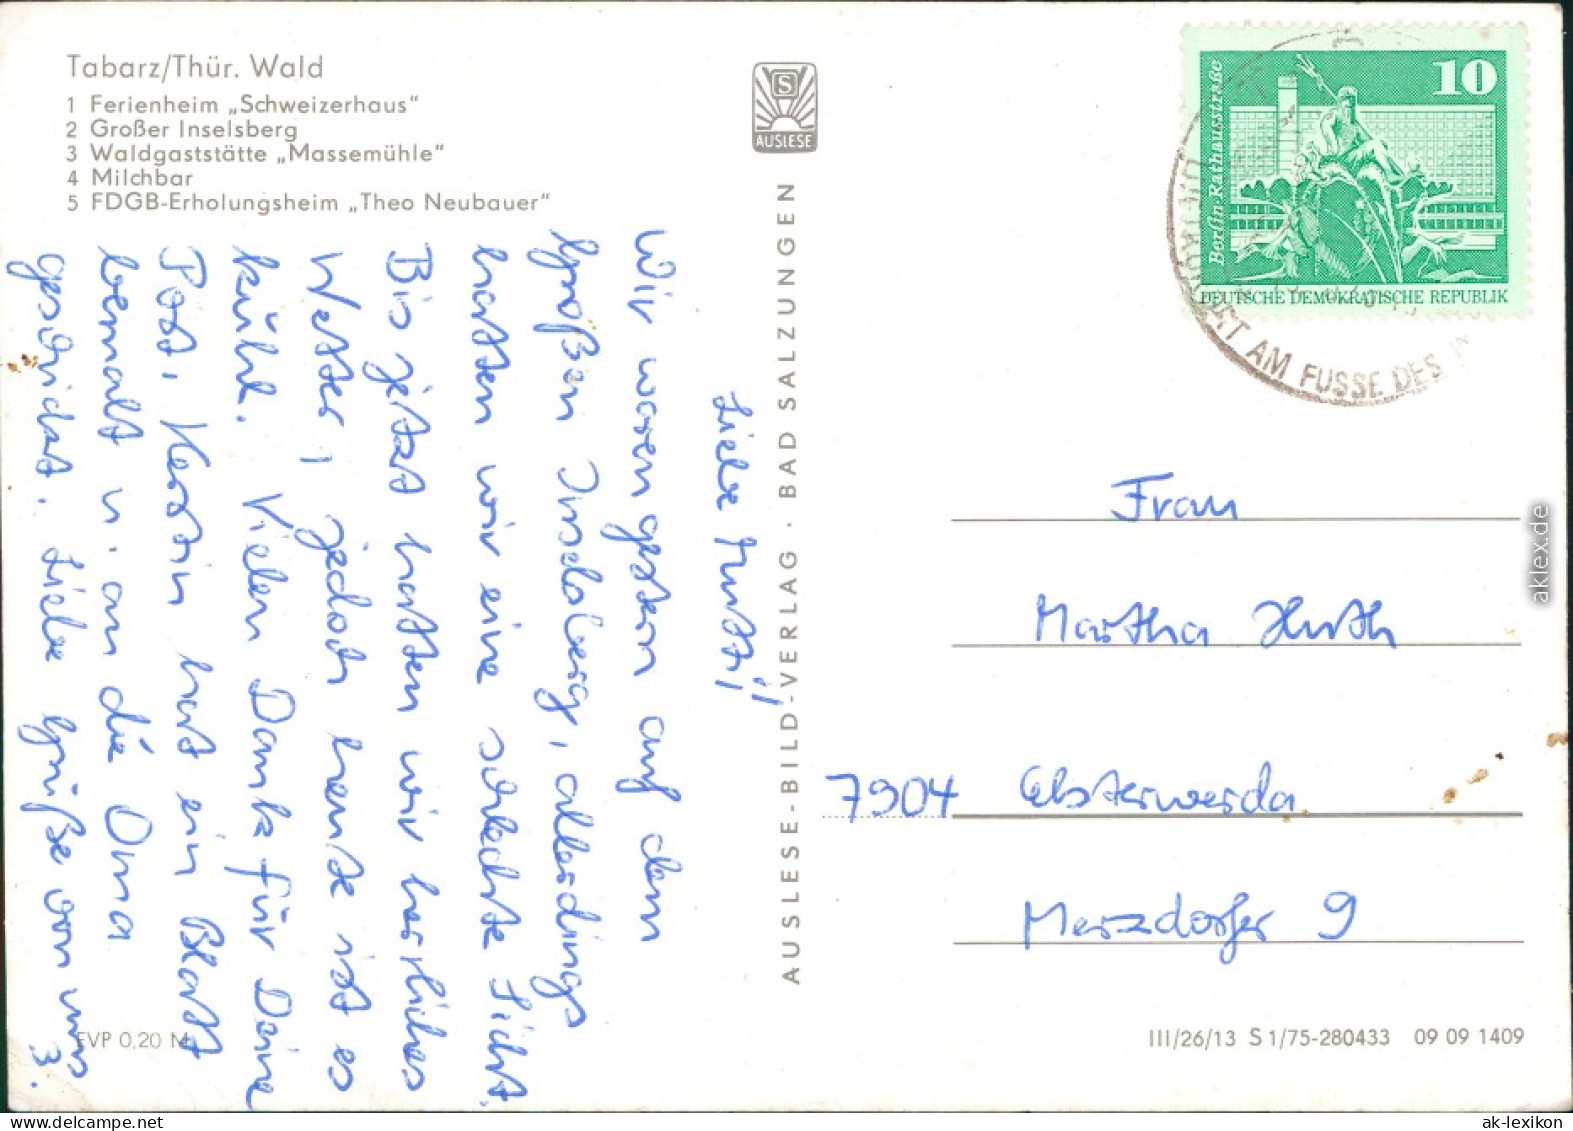 Tabarz/Thür. Wald
1 Ferienheim „Schweizerhaus“
2 Großer Inselsberg
3 Waldgaststätte „Massemühle“
4 Milchbar
5 FDGB-Erholungsheim „Theo Neubauer“
S
AUSLESE
10
Berlin-Rathausstraße
DEUTSCHE DEMOKRATISCHE REPUBLIK
AM FUSSE DES
Liebe Mutti!
Wir waren gestern auf dem
Großen Inselsberg, allerdings
hatten wir eine schlechte Sicht.
Bis jetzt hatten wir herrliches
Wetter, jedoch heute ist es
kühl. Vielen Dank für Deine
Post, Kerstin hat ein Blatt
bemalt u. an die Oma
geschickt. Liebe Grüße von uns
3.
AUSLESE-BILD-VERLAG · BAD SALZUNGEN
Frau
Martha Huth
7904 Elsterwerda
Merzdorfer 9
EVP 0,20 M
III/26/13 S 1/75-280433 09 09 1409
aklex.de
ak-lexikon